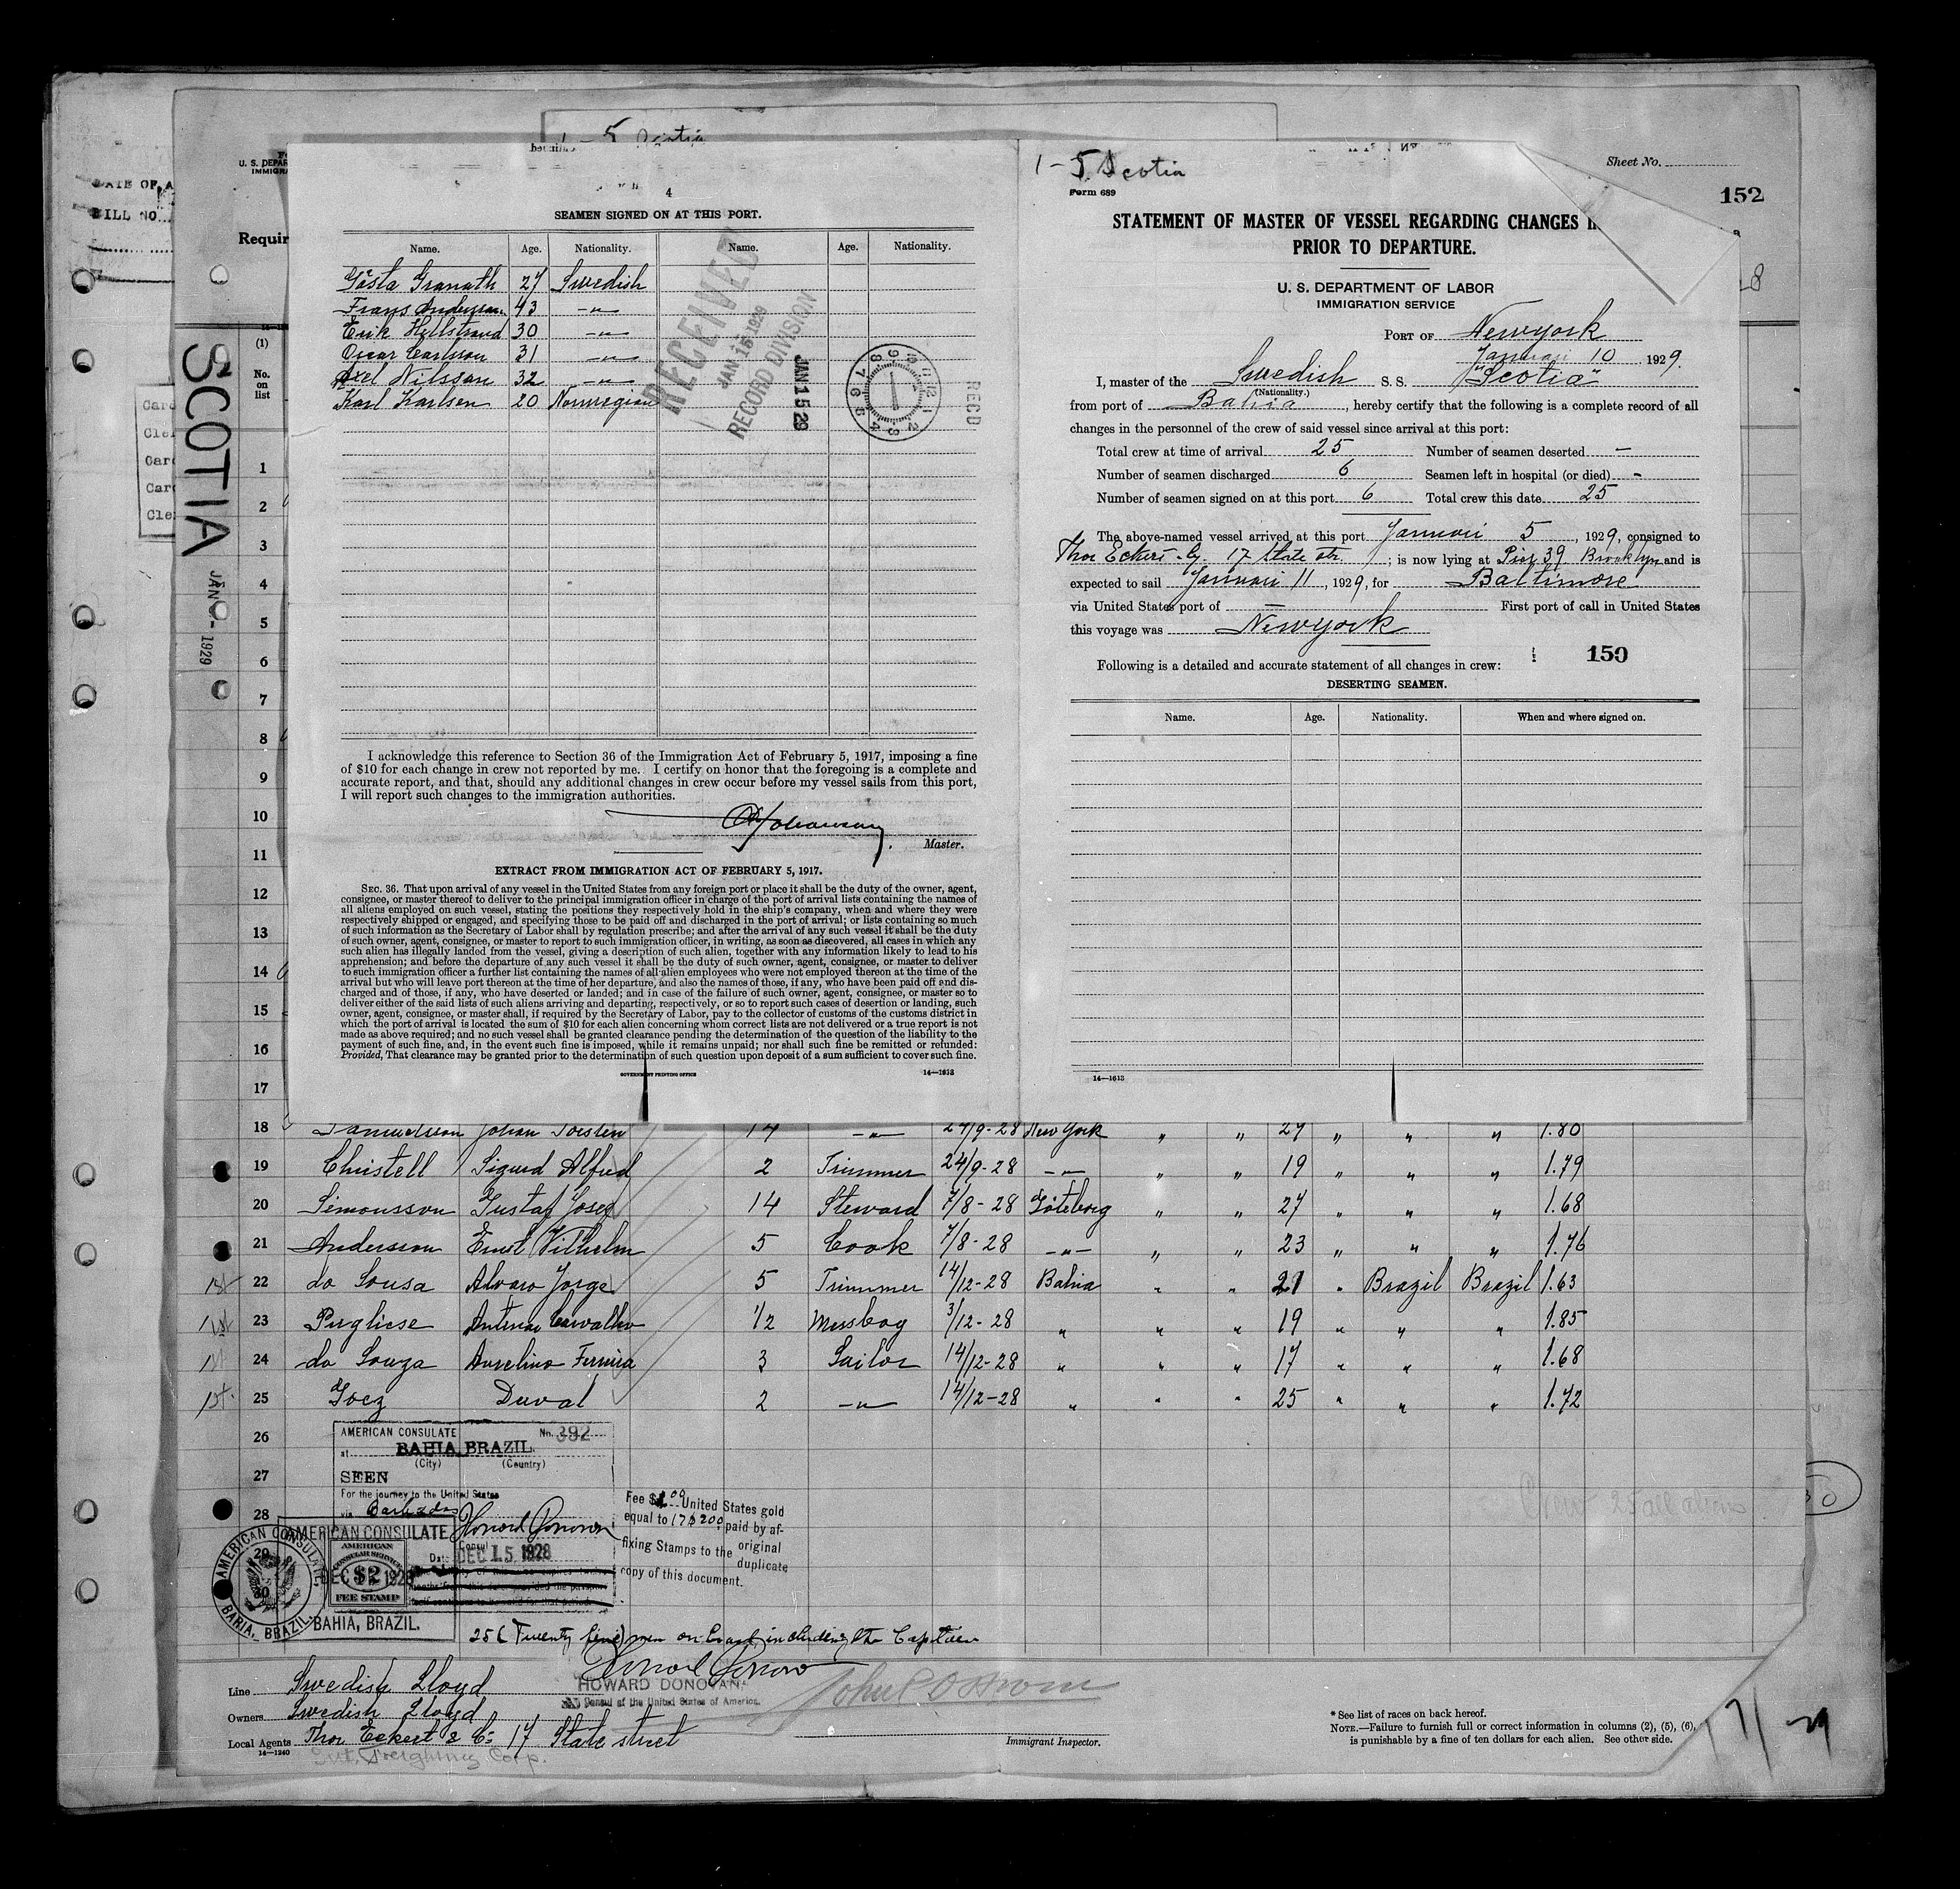 4
SEAMEN SIGNED ON AT THIS PORT.
Name. Age. Nationality. Name. Age. Nationality.
Gösta Granath 27 Swedish
Frans Andersson 43 -"-
Erik Hellstrand 30 -"-
Oscar Carlsson 31 -"-
Axel Nilsson 32 -"-
Karl Karlsen 20 Norwegian
RECEIVED
JAN 15 1929
RECORD DIVISION
JAN 15 29
REC'D
I acknowledge this reference to Section 36 of the Immigration Act of February 5, 1917, imposing a fine
of $10 for each change in crew not reported by me. I certify on honor that the foregoing is a complete and
accurate report, and that, should any additional changes in crew occur before my vessel sails from this port,
I will report such changes to the immigration authorities.
Master.
EXTRACT FROM IMMIGRATION ACT OF FEBRUARY 5, 1917.
SEC. 36. That upon arrival of any vessel in the United States from any foreign port or place it shall be the duty of the owner, agent,
consignee, or master thereof to deliver to the principal immigration officer in charge of the port of arrival lists containing the names of
all aliens employed on such vessel, stating the positions they respectively hold in the ship's company, when and where they were
respectively shipped or engaged, and specifying those to be paid off and discharged in the port of arrival; or lists containing so much
of such information as the Secretary of Labor shall by regulation prescribe; and after the arrival of any such vessel it shall be the duty
of such owner, agent, consignee, or master to report to such immigration officer, in writing, as soon as discovered, all cases in which any
such alien has illegally landed from the vessel, giving a description of such alien, together with any information likely to lead to his
apprehension; and before the departure of any such vessel it shall be the duty of such owner, agent, consignee, or master to deliver
to such immigration officer a further list containing the names of all alien employees who were not employed thereon at the time of the
arrival but who will leave port thereon at the time of her departure, and also the names of those, if any, who have been paid off and dis-
charged and of those, if any, who have deserted or landed; and in case of the failure of such owner, agent, consignee, or master so to
deliver either of the said lists of such aliens arriving and departing, respectively, or so to report such cases of desertion or landing, such
owner, agent, consignee, or master shall, if required by the Secretary of Labor, pay to the collector of customs of the customs district in
which the port of arrival is located the sum of $10 for each alien concerning whom correct lists are not delivered or a true report is not
made as above required; and no such vessel shall be granted clearance pending the determination of the question of the liability to the
payment of such fine, and, in the event such fine is imposed, while it remains unpaid; nor shall such fine be remitted or refunded:
Provided, That clearance may be granted prior to the determination of such question upon deposit of a sum sufficient to cover such fine.
GOVERNMENT PRINTING OFFICE 14—1613
1-5 Scotia
Form 689
Sheet No.
152
STATEMENT OF MASTER OF VESSEL REGARDING CHANGES
PRIOR TO DEPARTURE.
U. S. DEPARTMENT OF LABOR
IMMIGRATION SERVICE
PORT OF Newyork
Januari 10, 1929.
I, master of the Swedish S. S. "Scotia"
(Nationality.)
from port of Bahia, hereby certify that the following is a complete record of all
changes in the personnel of the crew of said vessel since arrival at this port:
Total crew at time of arrival 25 Number of seamen deserted —
Number of seamen discharged 6 Seamen left in hospital (or died) -
Number of seamen signed on at this port 6 Total crew this date 25
The above-named vessel arrived at this port Januari 5, 1929, consigned to
Thor Eckert Cy. 17 State str; is now lying at Pier 39 Brooklyn and is
expected to sail Januari 11, 1929, for Baltimore
via United States port of — First port of call in United States
this voyage was Newyork
150
Following is a detailed and accurate statement of all changes in crew:
DESERTING SEAMEN.
Name. Age. Nationality. When and where signed on.
14—1613
SCOTIA
JAN - 1929
(1)
No.
on
list
1
2
3
4
5
6
7
8
9
10
11
12
13
14
15
16
17
18 Samuelsson Johan Torsten 14 -"- 24/9-28 New York " " 27 " " " 1.80
19 Christell Sigurd Alfred 2 Trimmer 24/9-28 -"- " " 19 " " " 1.79
20 Simonsson Gustaf Josef 14 Steward 7/8-28 Göteborg " " 27 " " " 1.68
21 Andersson Ernst Vilhelm 5 Cook 7/8-28 -"- " " 23 " " " 1.76
22 do Sousa Alvaro Jorge 5 Trimmer 14/12-28 Bahia " " 21 " Brazil Brazil 1.63
23 Pugliese Antenor Carvalho 1/2 Messboy 3/12-28 " " " 19 " " " 1.85
24 do Souza Aurelino Ferreira 3 Sailor 14/12-28 " " " 17 " " " 1.68
25 Goez Duval 2 -"- 14/12-28 " " " 25 " " " 1.72
26
27
28
AMERICAN CONSULATE No. 392
at BAHIA, BRAZIL.
(City) (Country)
SEEN
For the journey to the United States
via Barbados
Howard Donovan
Consul
Date DEC 15 1928
AMERICAN CONSULATE
AMERICAN CONSULAR SERVICE
$2
FEE STAMP
BAHIA, BRAZIL.
AMERICAN CONSULATE, BAHIA, BRAZIL.
Fee $ United States gold
equal to 17$200 paid by af-
fixing Stamps to the original
duplicate
copy of this document.
25 (Twenty five) men on board including the Captain
Howard Donovan
HOWARD DONOVAN
Consul of the United States of America.
Crew 25 all aliens
Line Swedish Lloyd
Owners Swedish Lloyd
Local Agents Thor Eckert & Co 17 State street
14—1240
Immigrant Inspector.
* See list of races on back hereof.
NOTE.—Failure to furnish full or correct information in columns (2), (5), (6),
is punishable by a fine of ten dollars for each alien. See other side.